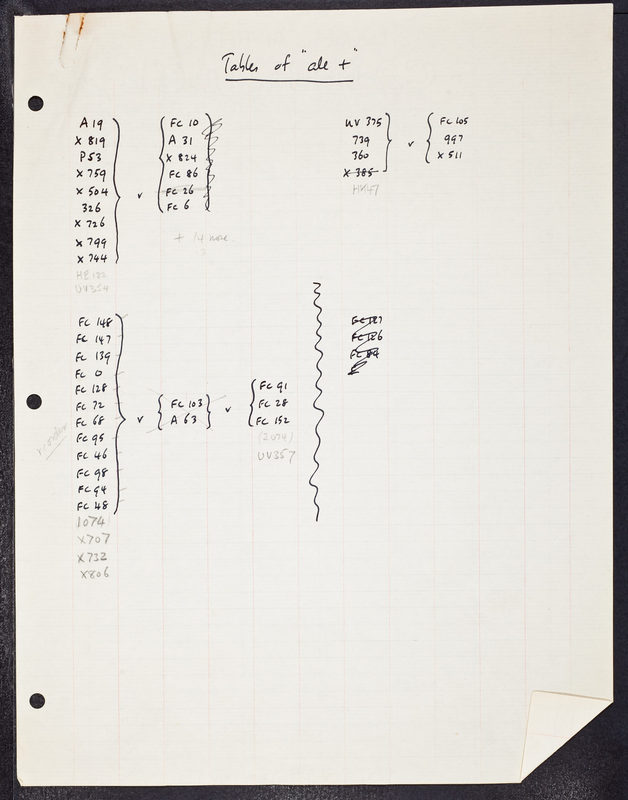 Tables of "ale +"
A 19
X 819
P 53
X 759
X 504
326
X 726
X 799
X 744
HE 132
UV354
v
FC 10
A 31
X 824
FC 86
FC 26
FC 6
+ 14 more
13
UV 375
739
360
X 385
HV47
v
FC 105
997
X 511
FC 148
FC 147
FC 139
FC 0
FC 128
FC 72
FC 68
FC 95
FC 46
FC 98
FC 94
FC 48
1074
X707
X732
X806
reorder
v
FC 103
A 63
v
FC 91
FC 28
FC 152
(2074)
UV357
FC 127
FC 126
FC 89